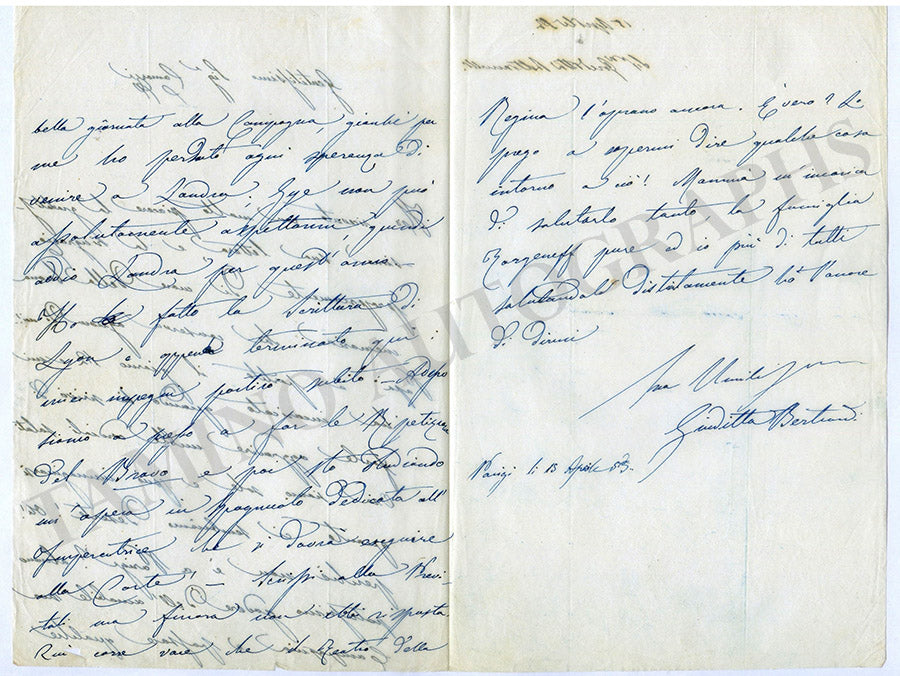 bella giornata alla Campagna, giacché per
me ho perduto ogni speranza di
venire a Londra, Gye non può
assolutamente aspettarmi quindi
addio Londra per quest'anno –
Ho fatto la scrittura di
Lyon e appena terminato qui i
miei impegni partirò subito. – Adesso
siamo a fare le Repetizioni
del Bravo e poi sto studiando
un'opera in Spagnuolo dedicata all'
Imperatrice che si dovrà eseguire
alla Corte! – Scrissi alla
ma finora non ebbi risposta
Qui corre voce che il Teatro della
Regina l'aprano ancora. È vero? La
prego a sapermi dire qualche cosa
intorno a ciò! Mamma m'incarica
di salutarlo tanto la famiglia
pure ed io più di tutti
salutandola distintamente ho l'onore
di dirmi
Sua Umile
Giuditta
Parigi li 13 Aprile 53.
TAMINO AUTOGRAPHS